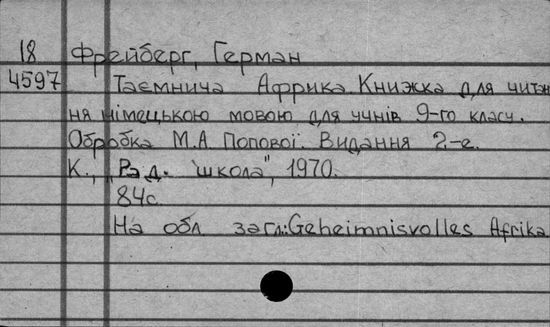 18 Фрейберг, Герман
4597 Таємнича Африка Книжка для читан
ня німецькою мовою для учнів 9-го класу.
Обробка М.А. Попової. Видання 2-е.
К., „Рад. школа", 1970.
84с.
На обл. загл.: Geheimnisvolles Afrika